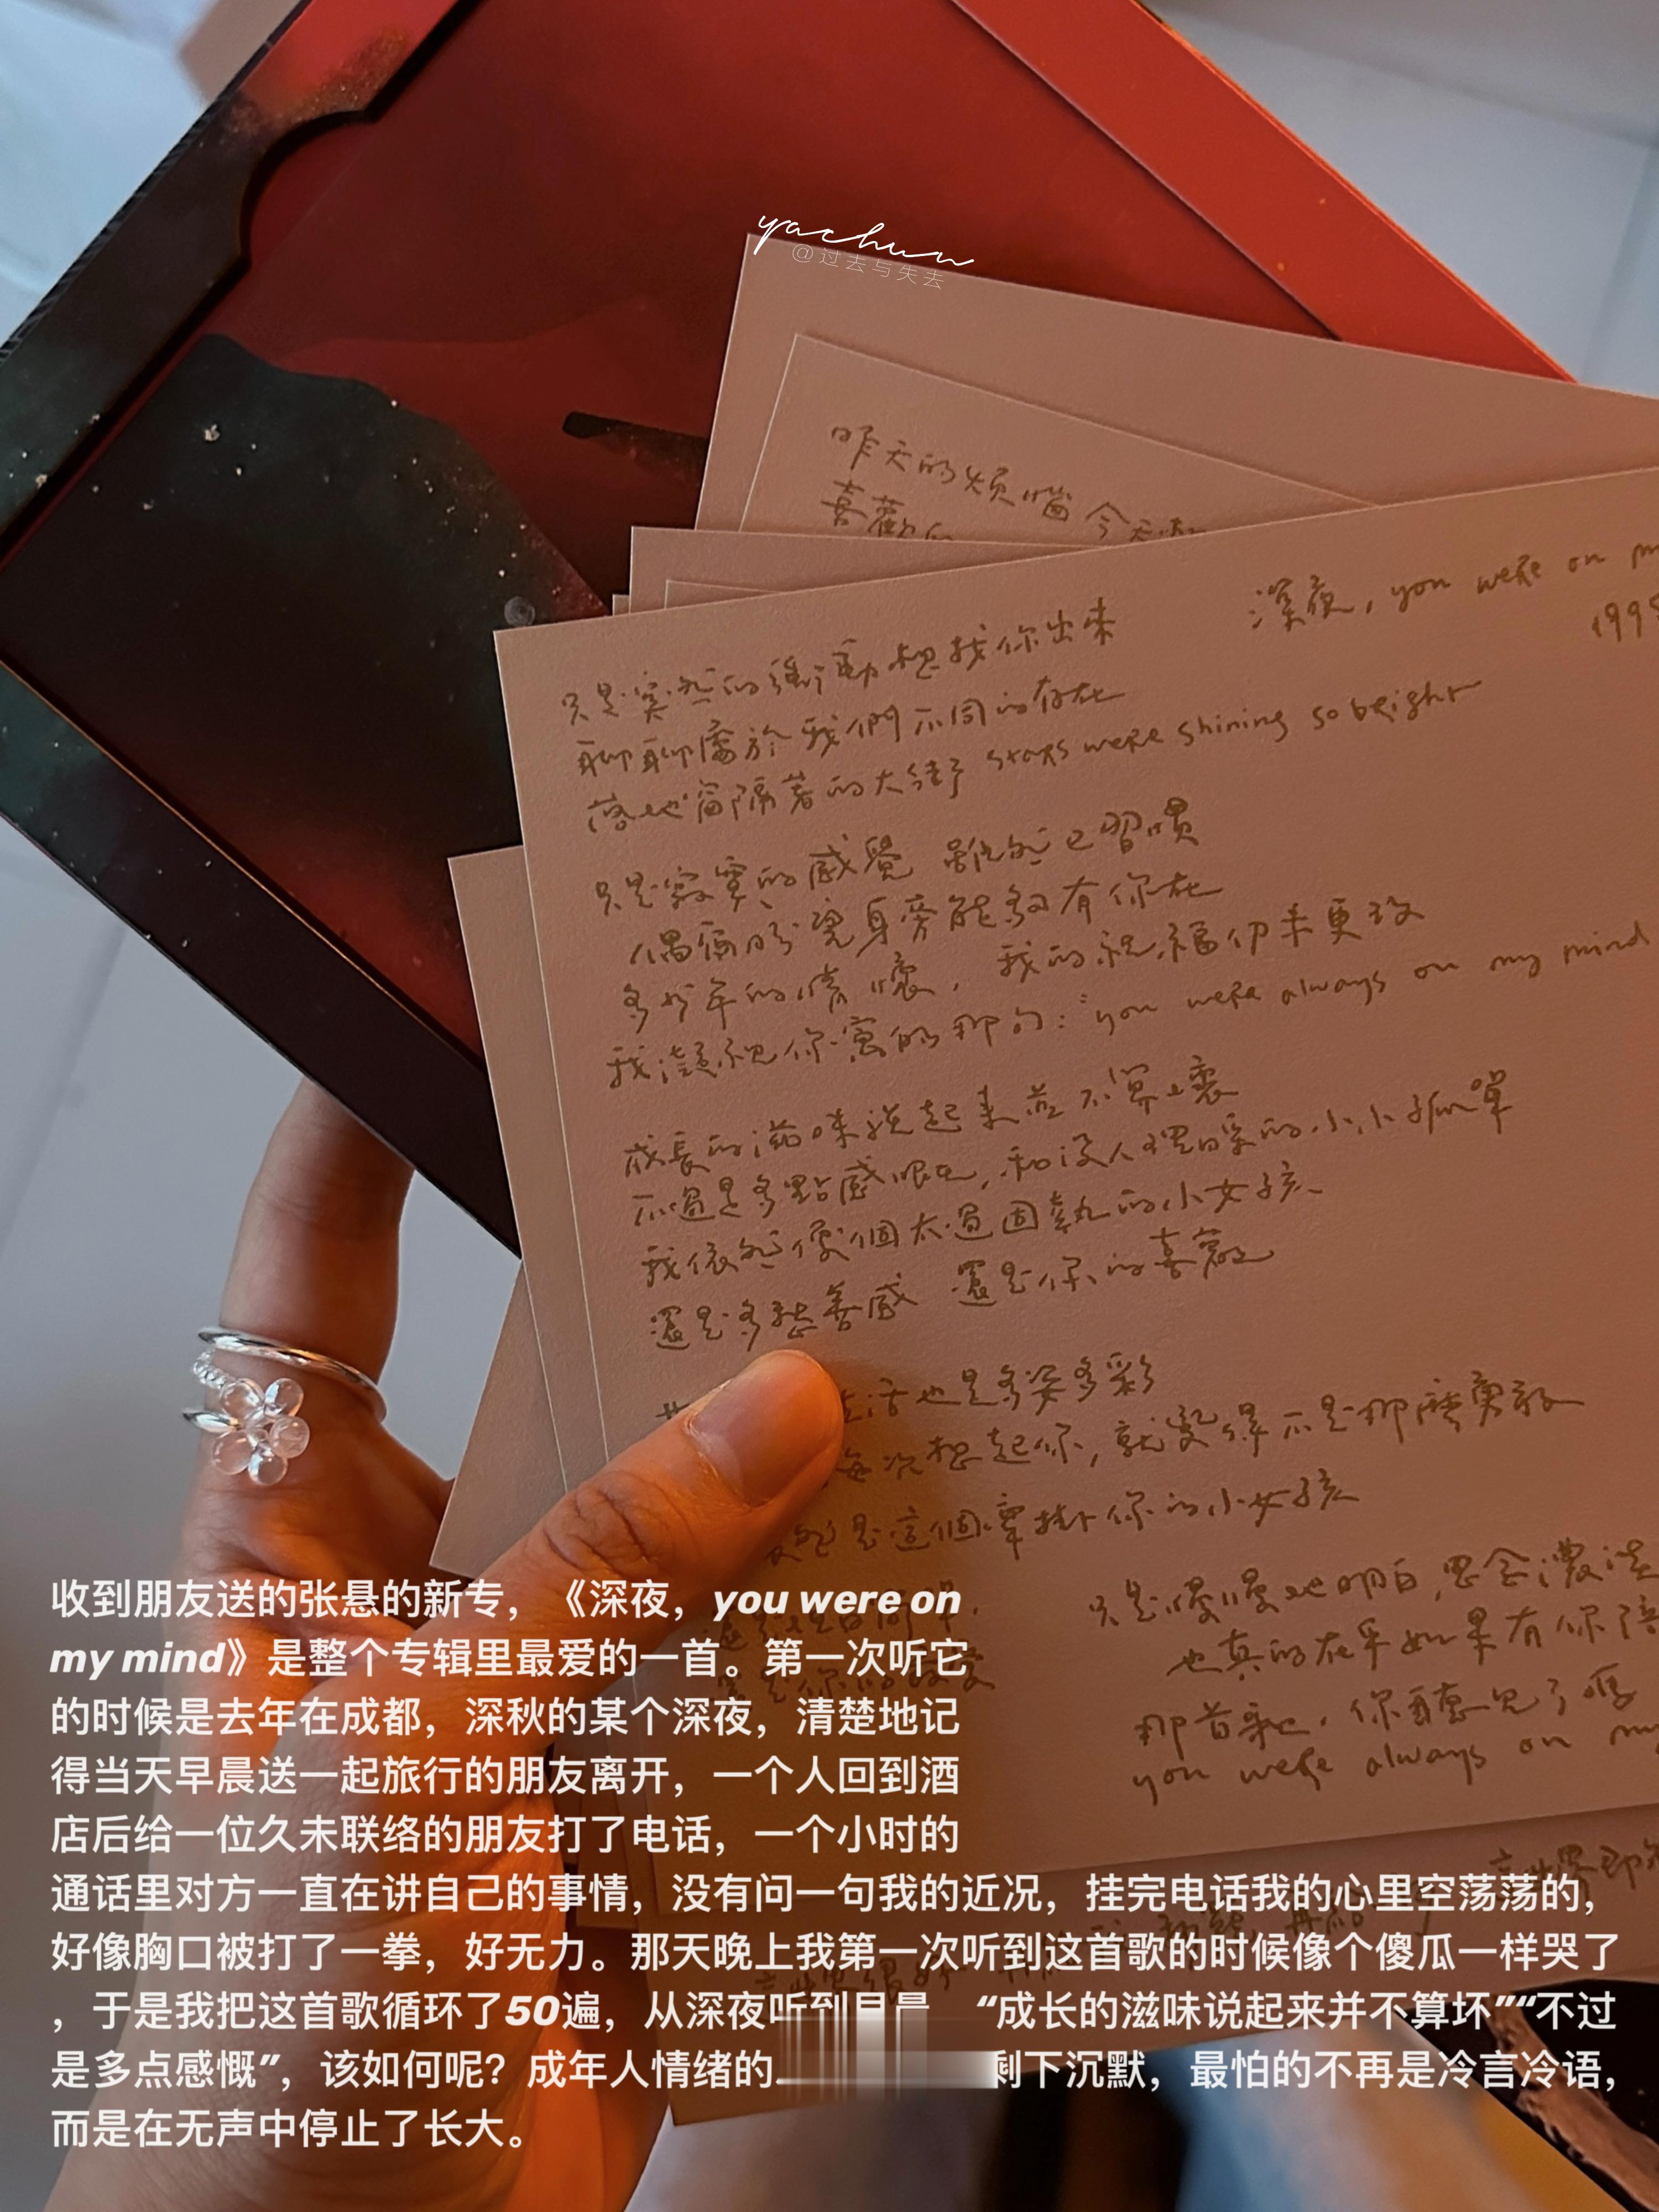 yachun
@过去与失去
昨天的煩惱 今天
喜歡的
深夜, you were on m
1998
只是突然的衝動想找你出來
聊聊關於我們不同的存在
落地窗隔著的大街 stars were shining so bright
只是寂寞的感覺 雖然已習慣
偶爾盼望身旁能夠有你在
多少年的情懷, 我的祝福仍未更改
我凝視你寫的那句: "you were always on my mind
成長的滋味說起來並不算壞
不過是多點感慨, 和沒人理睬的小小孤單
我依然像個太過固執的小女孩
還是多愁善感 還是你的喜歡
生活也是多姿多彩
每次想起你, 就變得不是那麼勇敢
是這個牽掛你的小女孩
只是慢慢地明白, 思念濃淡
也真的在乎如果有你陪
那首歌, 你聽見了嗎
you were always on my
收到朋友送的张悬的新专，《深夜，you were on
my mind》是整个专辑里最爱的一首。第一次听它
的时候是去年在成都，深秋的某个深夜，清楚地记
得当天早晨送一起旅行的朋友离开，一个人回到酒
店后给一位久未联络的朋友打了电话，一个小时的
通话里对方一直在讲自己的事情，没有问一句我的近况，挂完电话我的心里空荡荡的，
好像胸口被打了一拳，好无力。那天晚上我第一次听到这首歌的时候像个傻瓜一样哭了
，于是我把这首歌循环了50遍，从深夜听到 “成长的滋味说起来并不算坏”“不过
是多点感慨”，该如何呢？成年人情绪的 剩下沉默，最怕的不再是冷言冷语，
而是在无声中停止了长大。